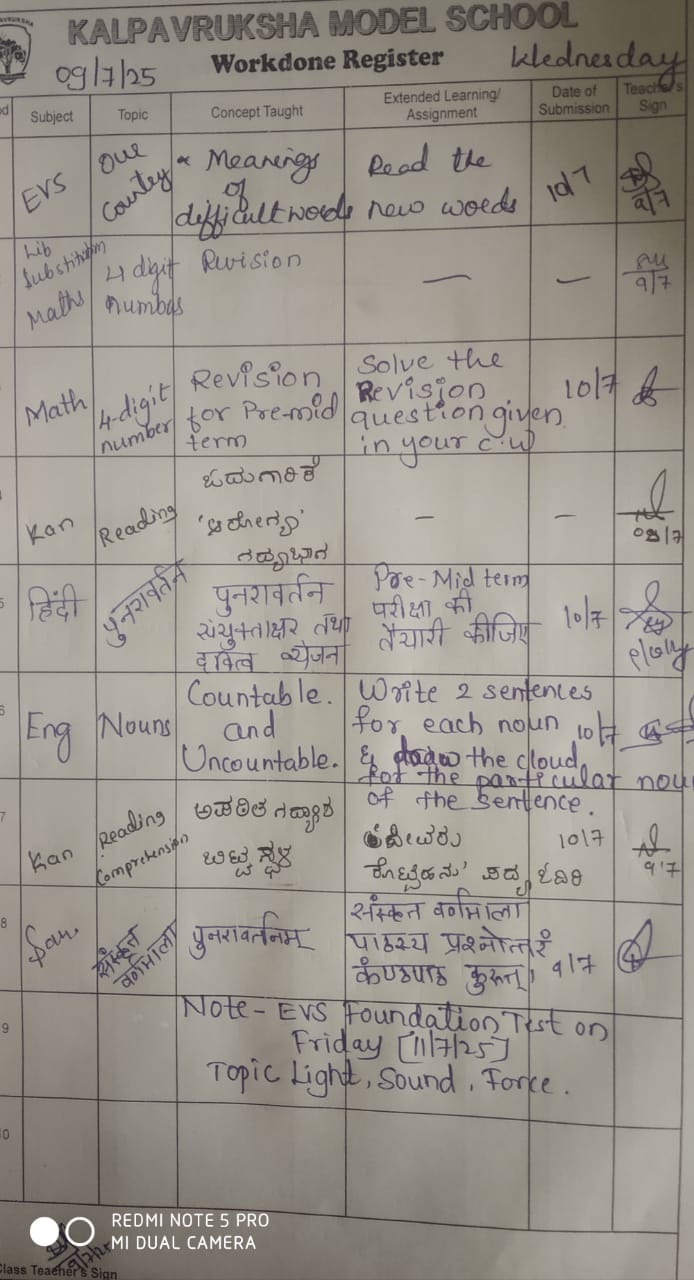 KALPAVRUKSHA MODEL SCHOOL
09/7/25 Workdone Register Wednesday
Subject Topic Concept Taught Extended Learning/ Assignment Date of Submission Teacher's Sign
EVS Our Country * Meanings of difficult words Read the new words 10/7 9/7
Lib Substitution Maths 4 digit numbers Revision — — 9/7
Math 4-digit number Revision for Pre-mid term Solve the Revision question given in your c.w 10/7
Kan Reading ಓದುಗಾರಿಕೆ 'ಆರೋಗ್ಯ' ಗದ್ಯಭಾಗ — — 09/7
5 हिंदी पुनरावर्तन पुनरावर्तन संयुक्ताक्षर तथा द्वित्व व्यंजन Pre-Mid term परीक्षा की तैयारी कीजिए 10/7
6 Eng Nouns Countable. and Uncountable. Write 2 sentences for each noun & draw the cloud for the particular noun of the sentence. 10/7
7 Kan Reading Comprehension ಅಪಠಿತ ಗದ್ಯಾಂಶ ಬಿಟ್ಟ ಸ್ಥಳ ದೇವರು ಕೊಟ್ಟಿಹನು' ಪದ್ಯ ಓದಿರಿ 10/7 9/7
8 San. संस्कृत वर्णमाला पुनरावर्तनम् संस्कृत वर्णमाला पाठस्य प्रश्नोत्तरं कंण्ठपाठ कुरुत। 9/7
9 Note - EVS Foundation Test on
Friday [11/7/25]
Topic Light, Sound, Force.
REDMI NOTE 5 PRO
MI DUAL CAMERA
9/7/25
Class Teacher's Sign